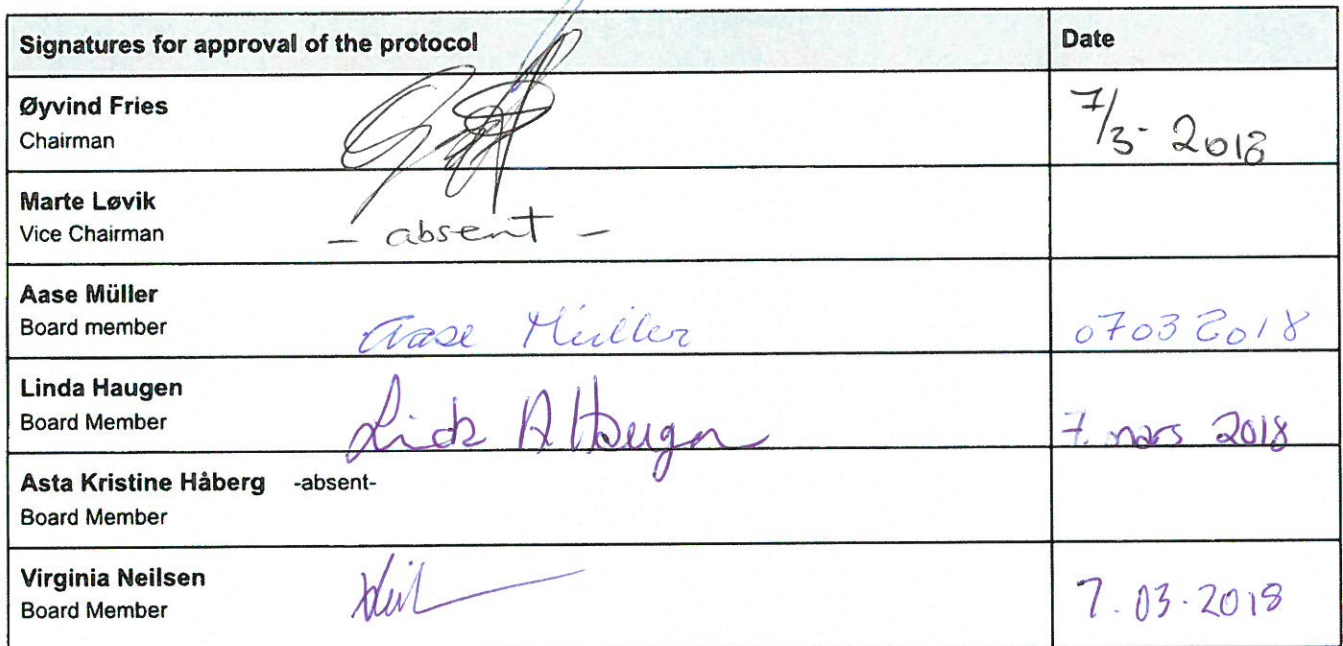 Signatures for approval of the protocol Date
Øyvind Fries
Chairman 7/3-2018
Marte Løvik
Vice Chairman - absent -
Aase Müller
Board member Aase Müller 07032018
Linda Haugen
Board Member Linda A Haugen 7. mars 2018
Asta Kristine Håberg -absent-
Board Member
Virginia Neilsen
Board Member 7.03.2018